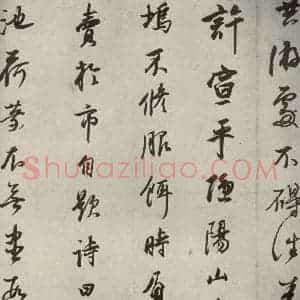 處不碍
許宣平隱陽山
塢不修服餌時負
賣於市自題詩曰
池荷葉衣無盡
Shufaziliao.com